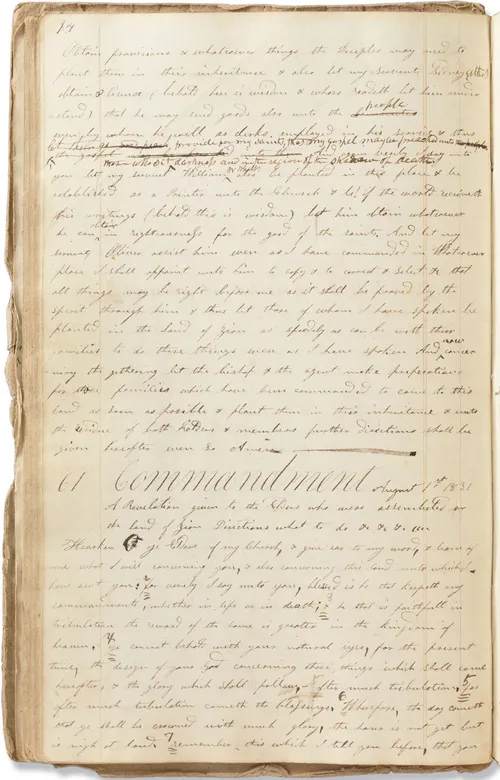 94
Obtain provisions & whatsoever things the Deciples may need to
plant them in their inheritance & also let my Servent Sidney (Gilbert)
obtain a licence (behold here is wisdom & whoso readeth let him under
stand) that he may send goods also unto the people
by whom he will, as clerks, employed in his service & thus
provide for my saints, that my gospel may be preached unto
those who sit in darkness and in the region of the shadow of death
you let my servent William W Phelps also be planted in this place & be
established as a Printer unto the Church & lo! if the world receiveth
his writings (behold this is wisdom) let him obtain whatsoever
he can obtain in righteousness for the good of the saints. And let my
servent Oliver assist him even as I have commanded in Whatsoever
place I shall appoint unto him to copy & to correct & select &c that
all things may be right before me as it shall be proved by the
spirit through him & thus let those of whom I have spoken be
planted in the land of Zion as speedily as can be with their
families to do these things even as I have spoken And now concer
ning the gethering let the bishop & the agent make preperations
for those families which have been commanded to come to this
land as soon as possible & plant them in their inheritance & unto
the residue of both Elders & members further directions shall be
given hereafter even so Amen
61 Commandment August 1st 1831
A Revelation given to the Elders who were assembled on
the land of Zion Directions what to do &c &c &c
Hearken O ye Elders of my Church, & give ear to my word, & learn of
me what I will concerning you, & also concerning this land unto which I
have sent you: 2 for verily I say unto you, blessed is he that keepeth my
commandments, whether in life or in death; & 3 he that is faithfull in
tribulation the reward of the same is greater in the kingdom of
heaven. 4 ye cannot behold with your natural eyes, for the present
time, the design of your God concerning those things which shall come
hereafter, & the glory which shall follow, after much tribulation. 5 for
after much tribulation cometh the blessings. 6 Wherefore, the day cometh
that ye shall be crowned with much glory, the hour is not yet but
is nigh at hand 7 remember, this which I tell you before, that you